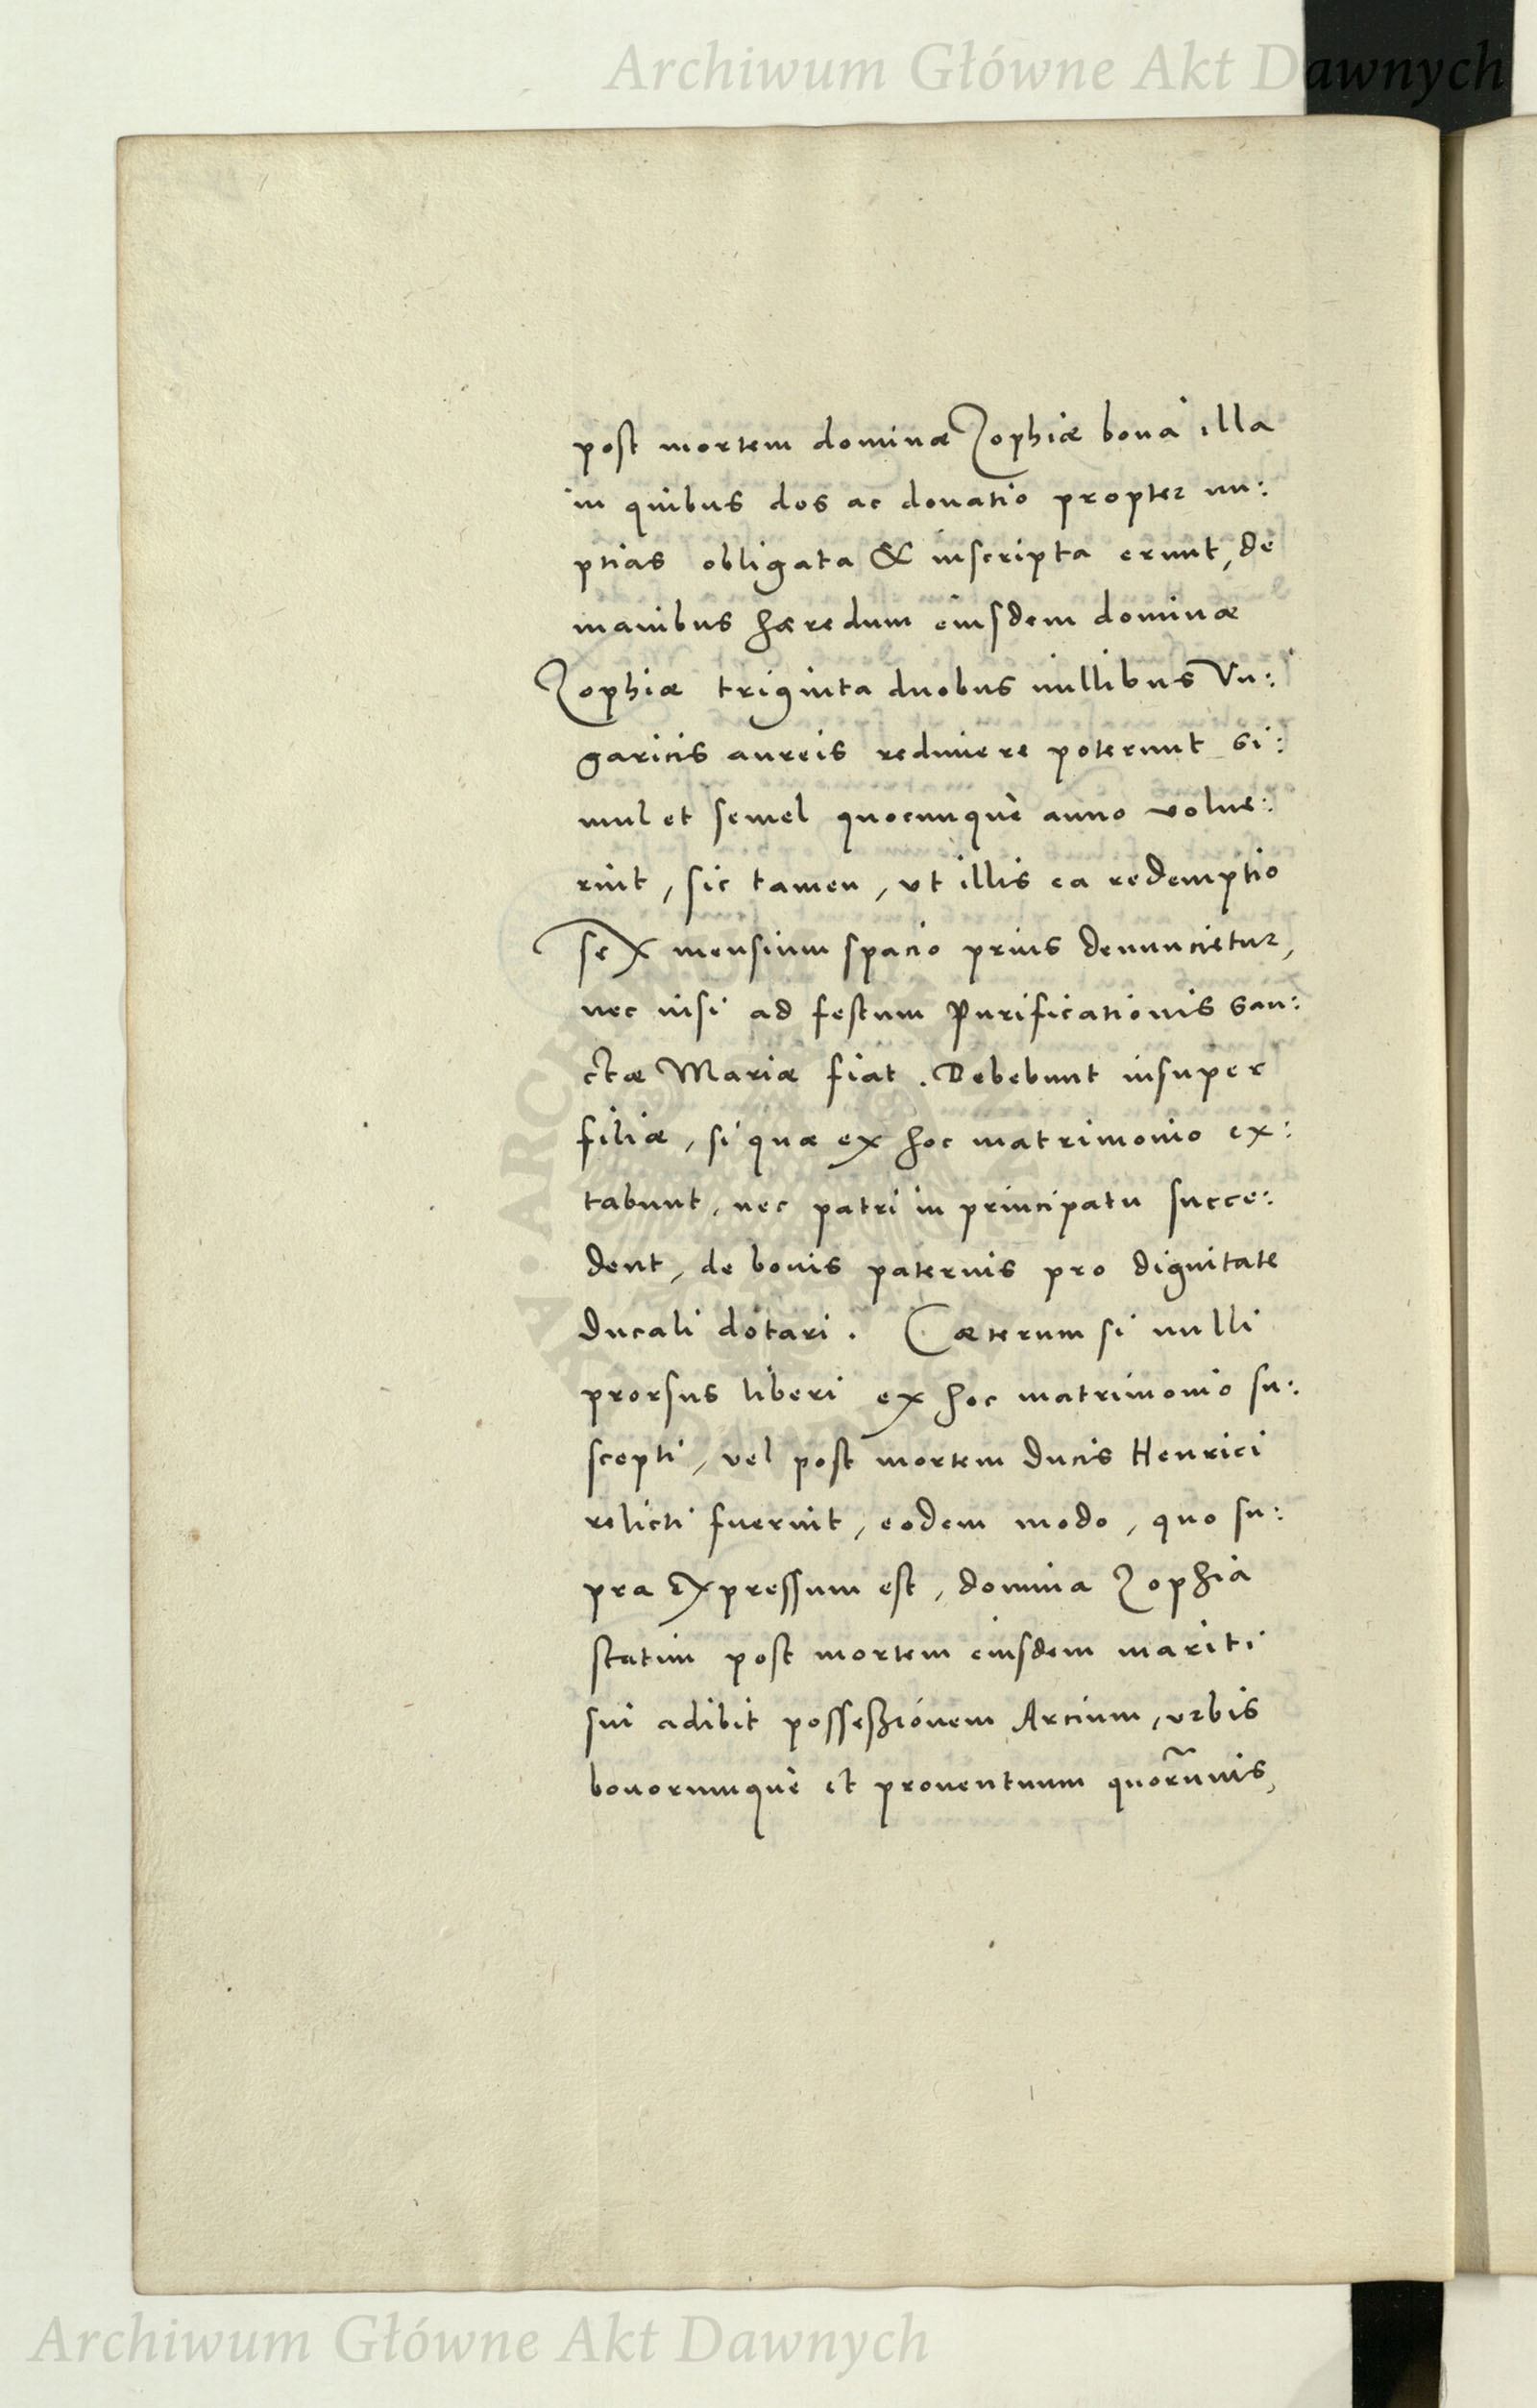 Archiwum Główne Akt Dawnych
post mortem dominæ Zophiæ bona illa
in quibus dos ac donatio propter nu:
ptias obligata & inscripta erunt, de
manibus hæredum eiusdem dominæ
Zophiæ triginta duobus millibus Vn:
garicis aureis redimere poterunt si:
mul et semel quocunquè anno volue:
rint, sic tamen, vt illis ea redemptio
sex mensium spacio prius denuncietur,
nec nisi ad festum Purificationis San:
ctæ Mariæ fiat. Debebunt insuper
filiæ, si quæ ex hoc matrimonio ex:
tabunt, nec patri in principatu succe:
dent, de bonis paternis pro dignitate
Ducali dotari. Cæterum si nulli
prorsus liberi ex hoc matrimonio su:
scepti, vel post mortem Ducis Henrici
relicti fuerint, eodem modo, quo su:
pra expressum est, domina Zophia
statim post mortem eiusdem mariti
sui adibit posseßionem Arcium, vrbis
bonorumquè et prouentuum quorũuis,
Archiwum Główne Akt Dawnych